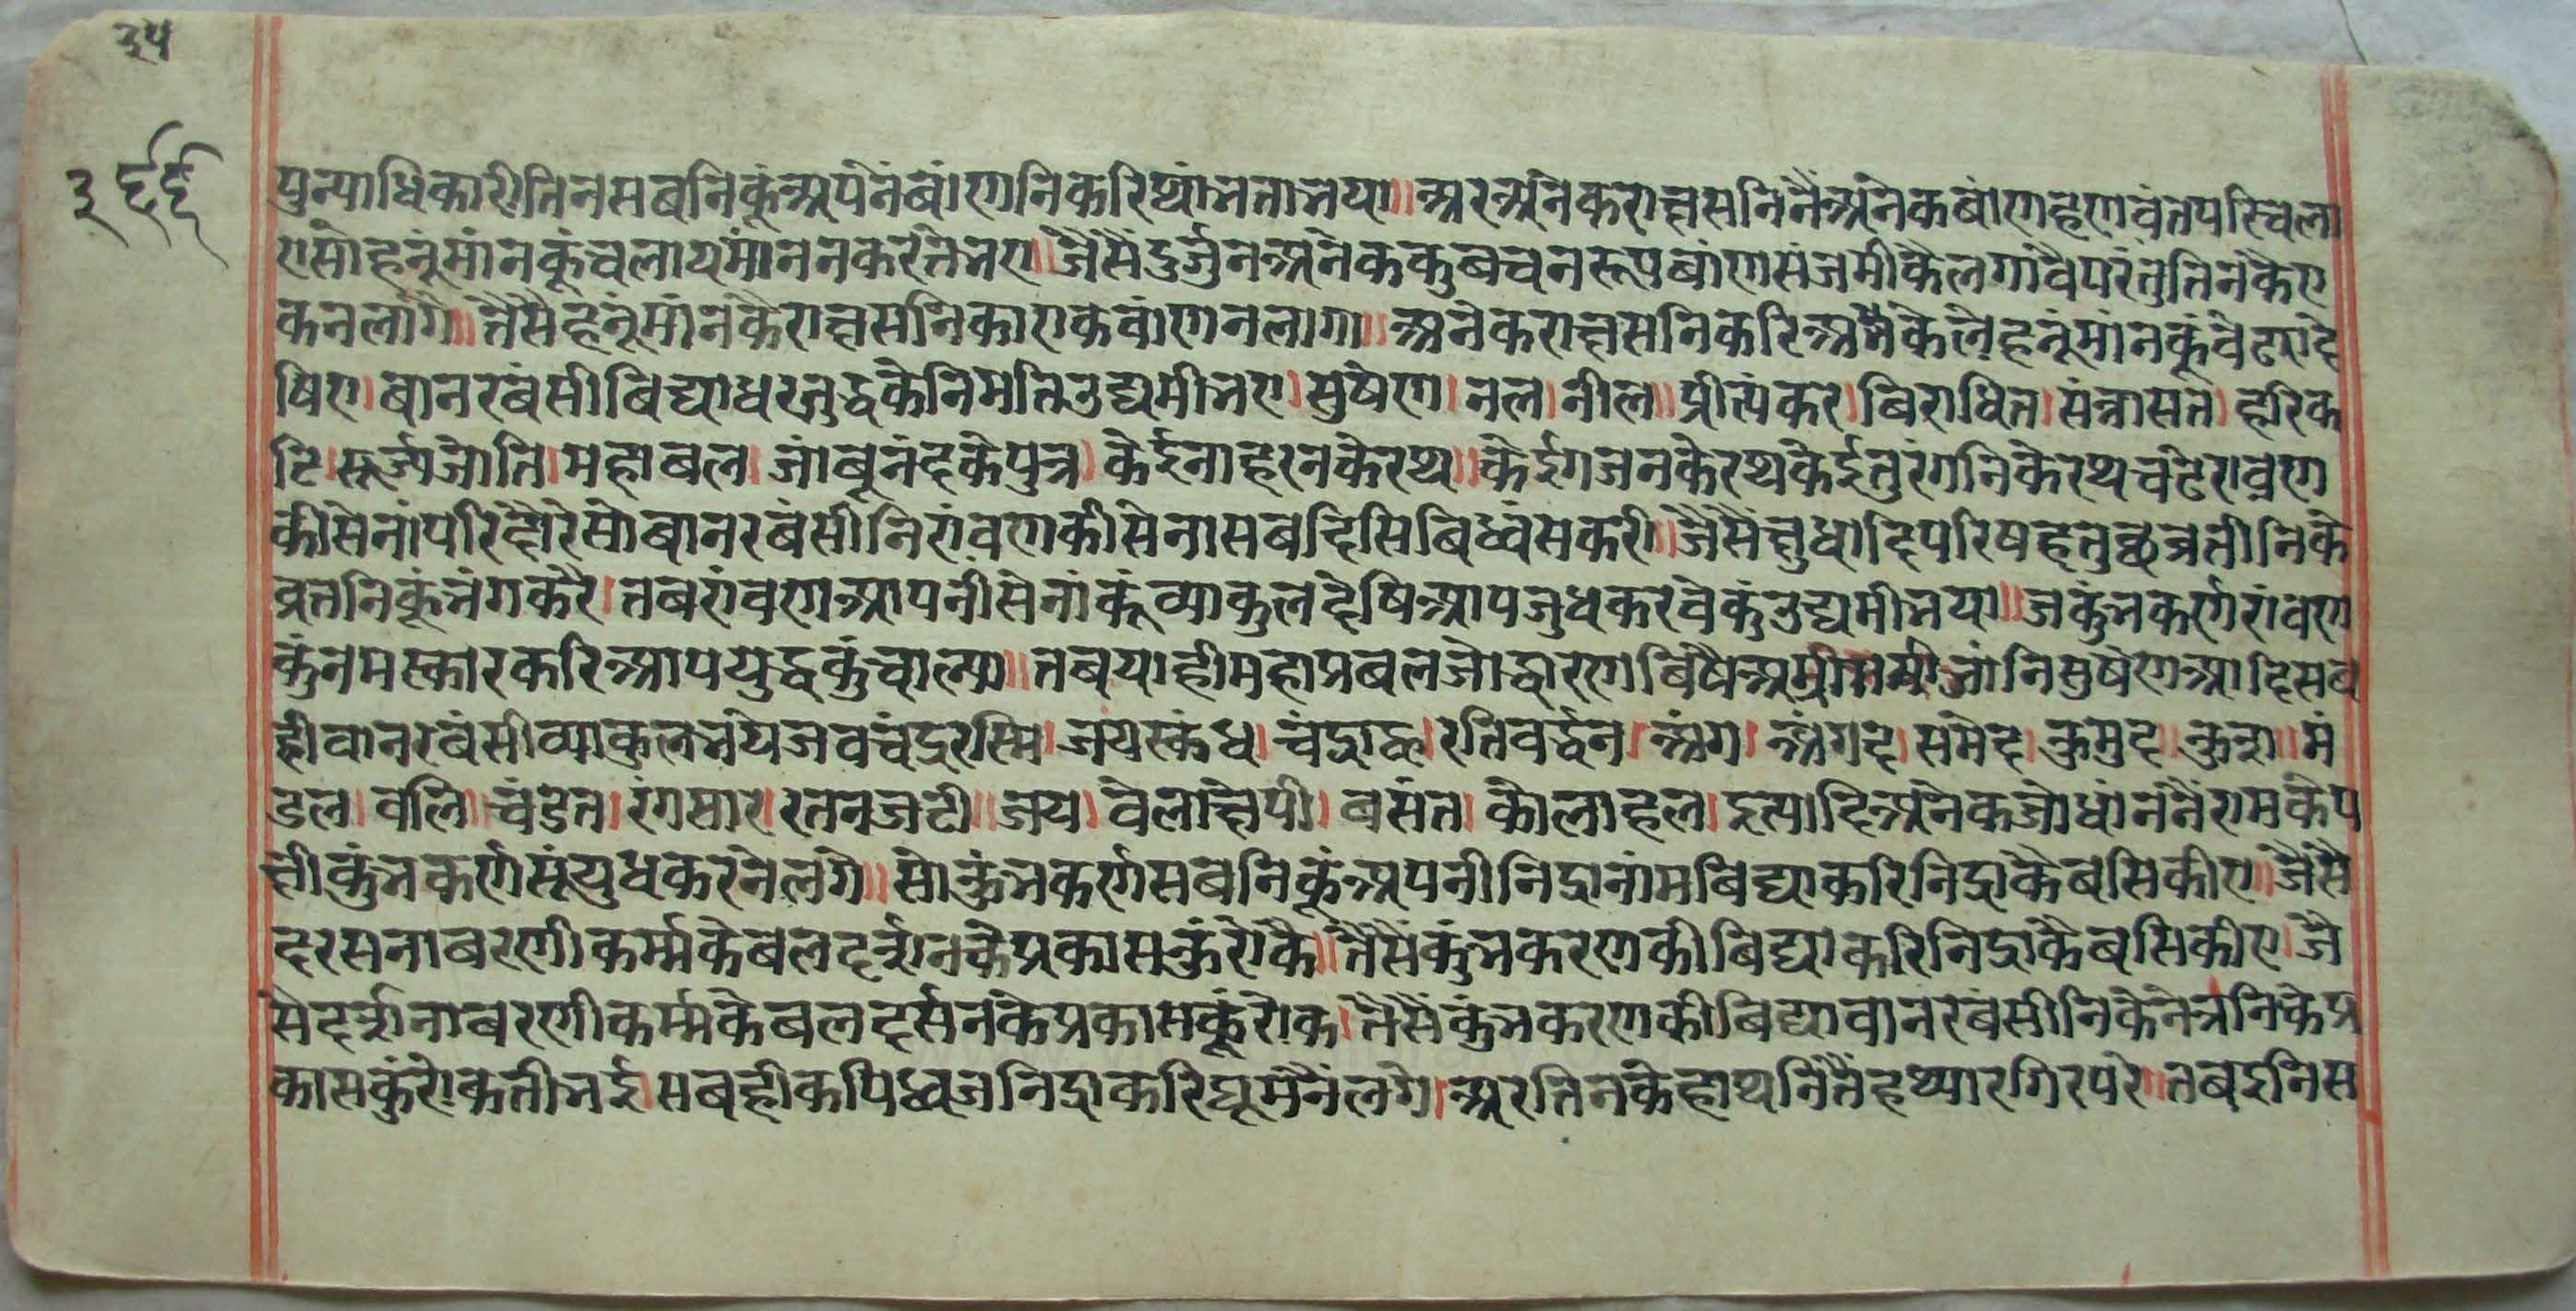 ३५
३९९
पुन्याधिकारीतिनसबनिकूंअपनेंबांणनिकरिथांभताभया॥अरअनेकराक्षसनिनैंअनेकबांणहणवंतपरिचला
एसोहनूंमांनकूंचलायमांननकरतेभए॥जैसैंदुर्जनअनेककुबचनरूपबांणसंजमीकैलगावैपरंतुतिनकैए
कनलागै॥तैसैहनूंमांनकैराक्षसनिकाएकबांणनलागा॥अनेकराक्षसनिकरिअकेलैहनूंमांनकूंबेढ्यादे
षिए।बानरबंसीबिद्याधरजुद्धकेनिमतिउद्यमीभए।सुषेण।नल।नील॥प्रीत्यंकर।बिराधित।संत्रासत।हरिक
टि।सूर्जजोति।महाबल।जांबूनंदकेपुत्र।केईनाहरनकेरथ॥केईगजनकेरथकेईतुरंगनिकेरथचढेरावण
कीसेनांपरिदौरेसोबानरबंसीनिरांवणकीसेनासबदिसिबिध्वंसकरी॥जैसैंक्षुधादिपरिषहतुछव्रतीनिके
व्रतनिकूंभंगकरै।तबरांवणआपनींसेनांकूंव्याकुलदेषिआपजुधकरवेकुंउद्यमीभया॥जकुंभकर्णरांवण
कुंनमस्कारकरिआपयुद्धकुंचाल्या॥तबयाहीमहाप्रबलजोद्धारणबिषैंअग्रीगामीजांनिसुषेणआदिसब
हीवानरबंसीव्याकुलभयेजवचंद्ररस्मि।जयस्कंध।चंद्राह्न।रतिवर्द्धन।अंग।अंगद।संमेद।कुमुद।कुत्रा॥मं
डल।बलि॥चंडत।रंगसार।रतनजटी॥जय।वेलाक्षेपी।बसंत।कोलाहल।इत्यादिअनेकजोधांनंनैरामकेप
क्षीकुंभकर्णसूंयुधकरनेलगे॥सोकुंभकर्णसबनिकूंअपनीनिद्रानांमबिद्याकरिनिद्राकैबसिकीए॥जैसै
दरसनाबरणीकर्म्मकेबलदर्शनकैप्रकासकुंरोकै॥तैसैंकुंभकरणकीबिद्याकरिनिद्राकैबसिकीए।जै
सेदर्शनाबरणीकर्म्मकैबलदर्सनकेप्रकासकूंरोक।तैसैंकुंभकरणकीबिद्यावानरबंसीनिकेनेत्रनिकेप्र
कासकुंरोकतीभई।सबहीकपिध्वजनिद्राकरिघूमनैंलगे।अरतिनकेहाथनितैंहथ्यारगिरपरे॥तबइनिस